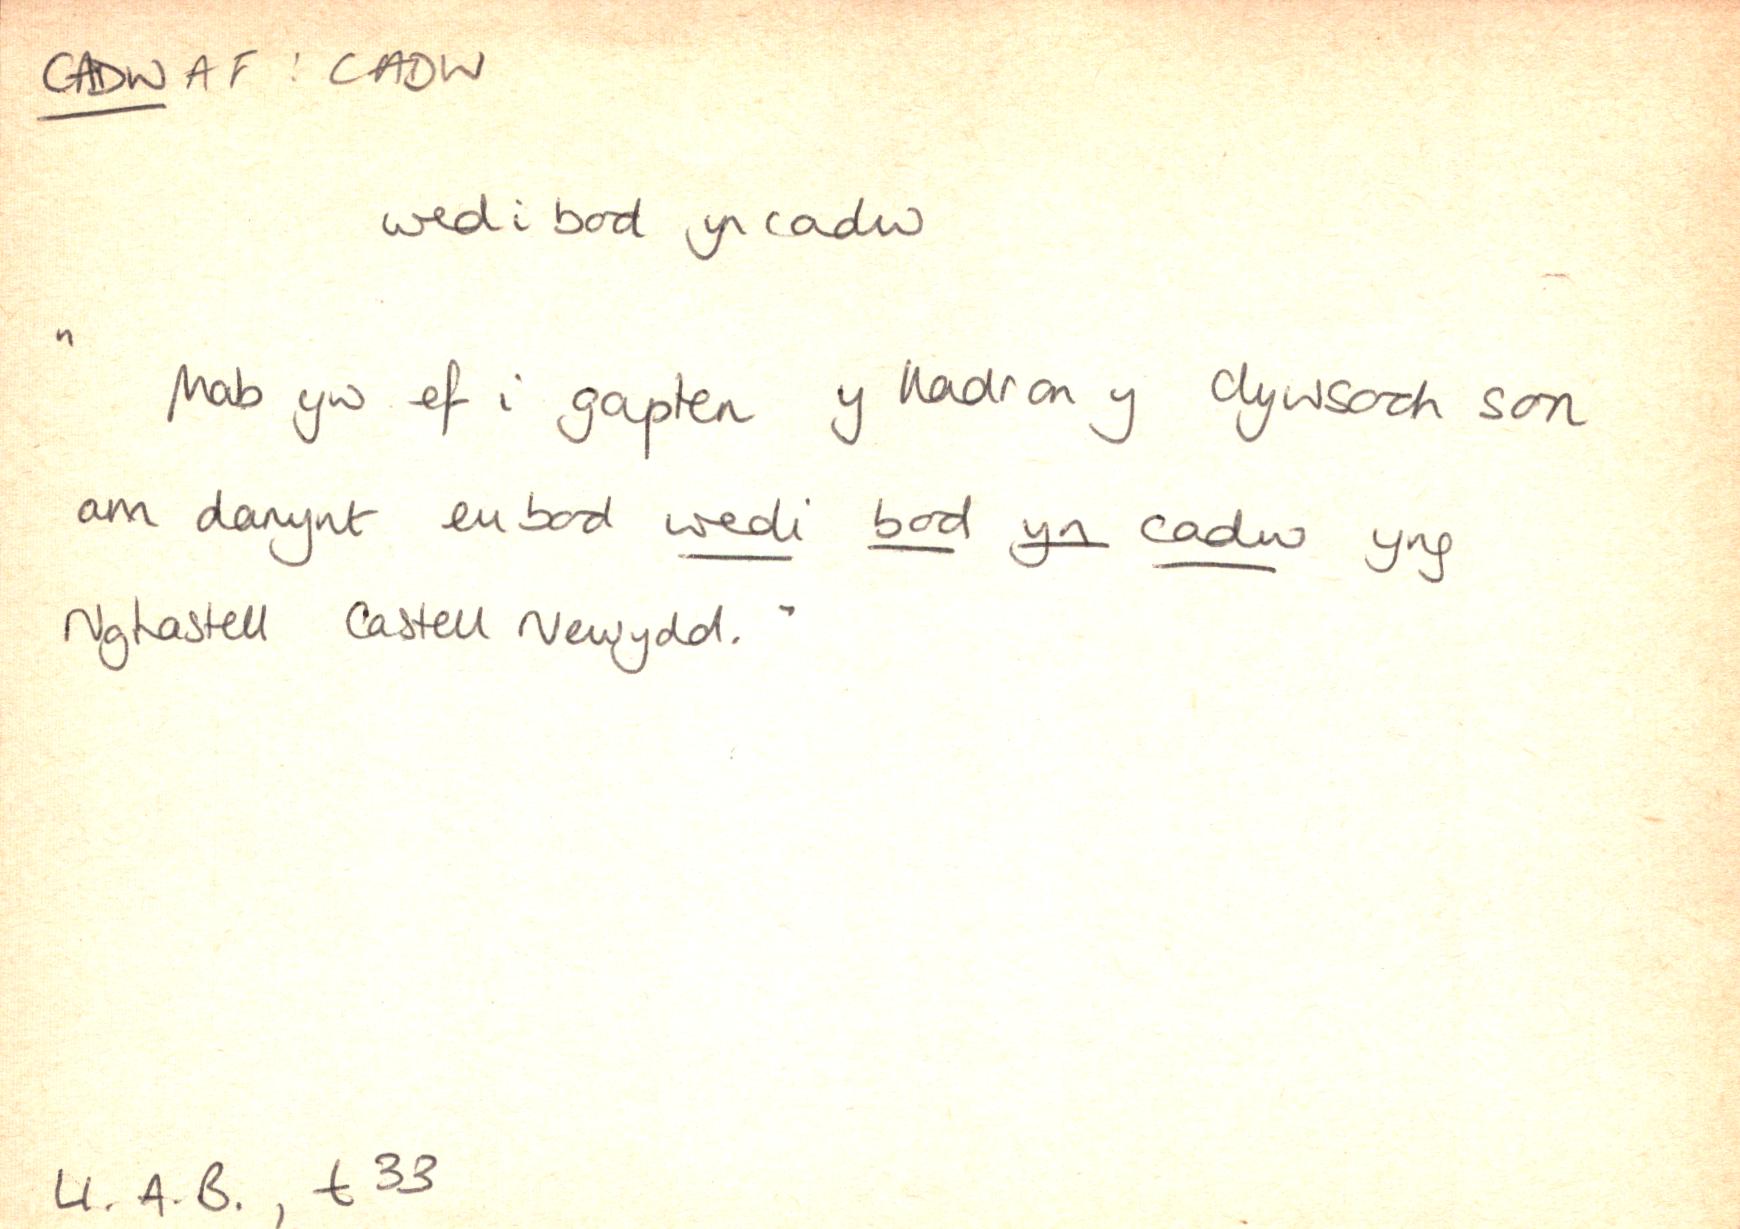 CADWAF : CADW
wedi bod yn cadw
" Mab yw ef i gapten y lladron y clywsoch son
am danynt eu bod wedi bod yn cadw yng
Nghastell Castell Newydd. "
Ll. A. B., t 33